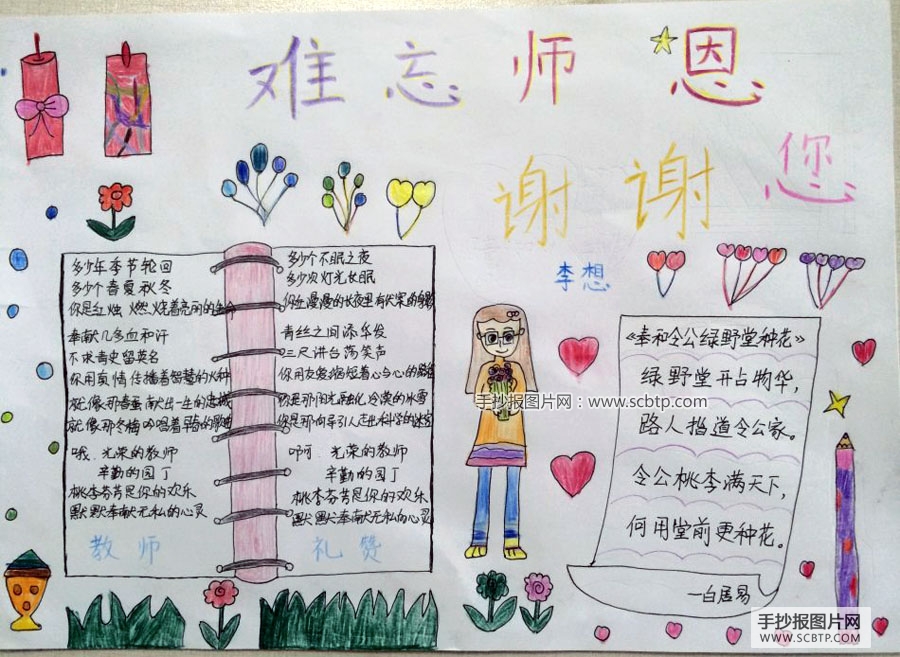 难忘师恩
谢谢您
李想
多少年季节轮回
多少个春夏秋冬
你是红烛 燃烧着亮丽的生命
奉献几多血和汗
不求青史留英名
你用真情传播着智慧的火种
就像那春蚕献出一生的忠诚
就像那冬梅吟唱着早春的歌声
哦 光荣的教师
辛勤的园丁
桃李芬芳是你的欢乐
默默奉献无私的心灵
教师
多少个不眠之夜
多少次灯光长眠
你在漫漫的长夜里有伏案的身影
青丝之间添华发
三尺讲台荡笑声
你用友爱缩短着心与心的路程
你是那阳光融化冷漠的冰雪
你是那向导引人走出科学的迷宫
啊 光荣的教师
辛勤的园丁
桃李芬芳是你的欢乐
默默奉献无私的心灵
礼赞
《奉和令公绿野堂种花》
绿野堂开占物华，
路人指道令公家。
令公桃李满天下，
何用堂前更种花。
—白居易
李想
手抄报图片网：www.scbtp.com
手抄报图片网
WWW.SCBTP.COM